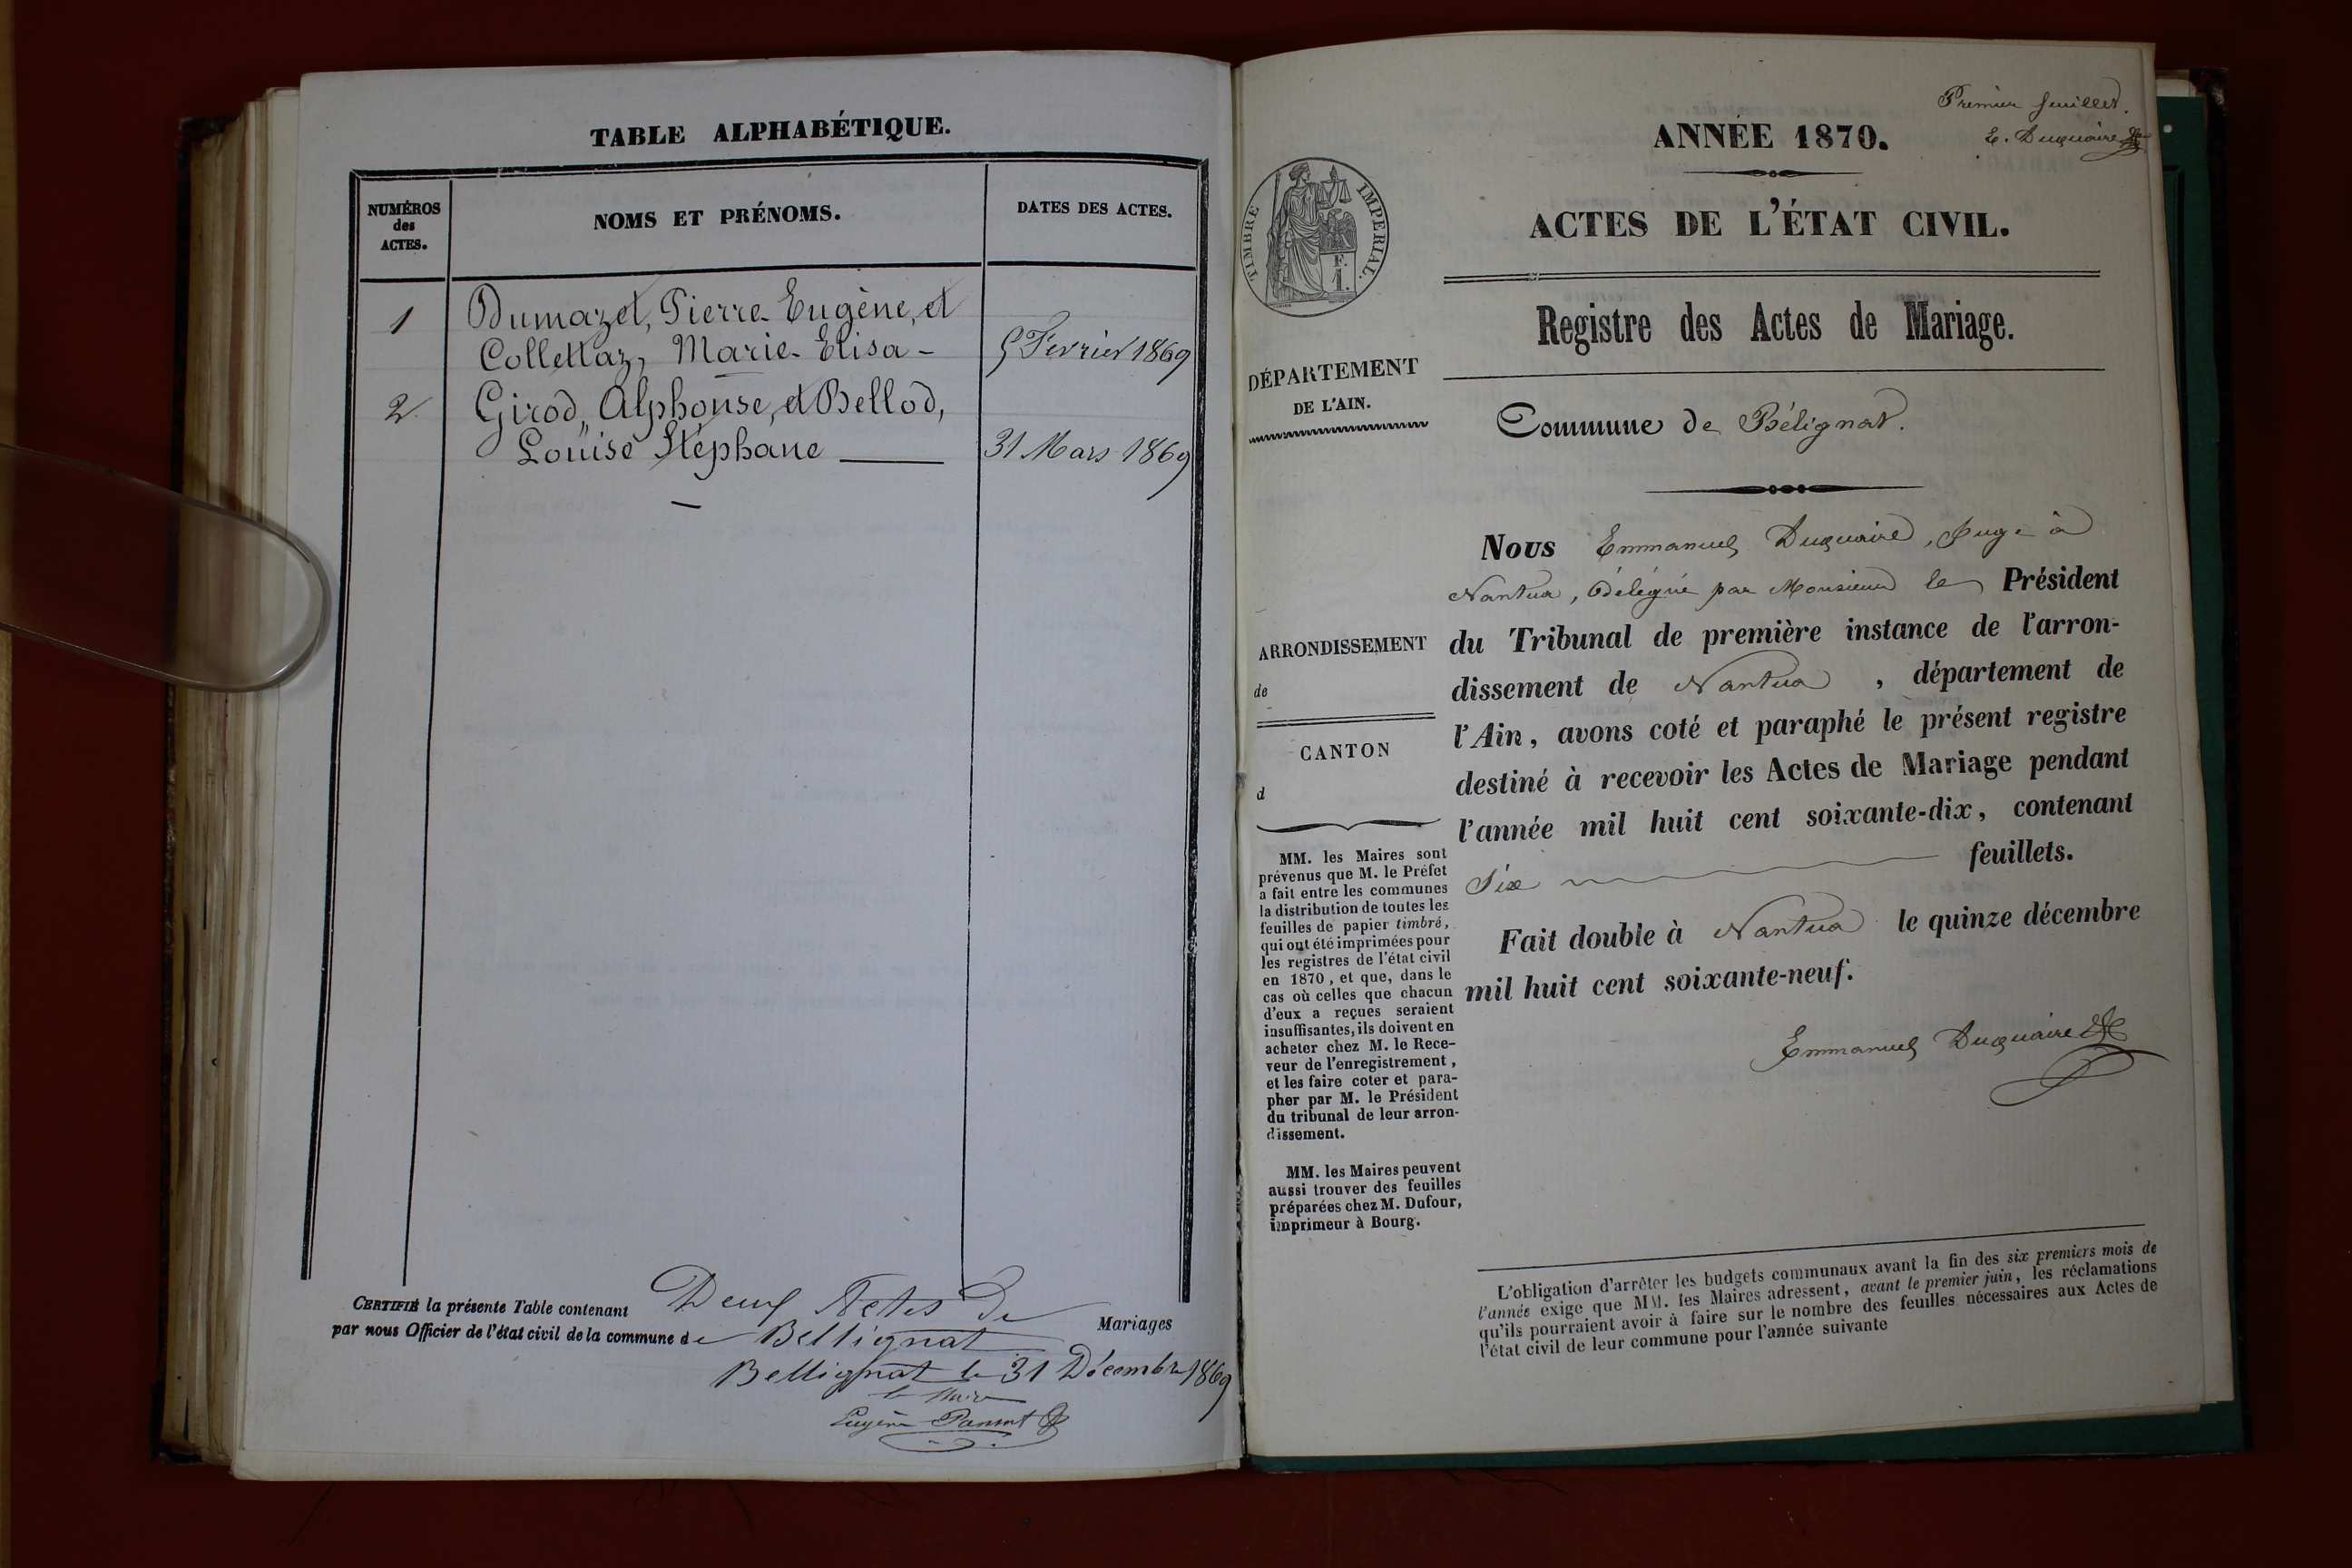 TABLE ALPHABÉTIQUE.
NUMÉROS
des
ACTES.
NOMS ET PRÉNOMS.
DATES DES ACTES.
1
Dumazet, Pierre-Eugène, et
Collettaz, Marie-Elisa -
5 Février 1869
2.
Girod, Alphonse, et Bellod,
Louise Stéphane
31 Mars 1869
CERTIFIÉ la présente Table contenant Deux Actes de Mariages
par nous Officier de l'état civil de la commune de Bellignat
Bellignat le 31 Décembre 1869
le Maire
Eugène
Premier feuillet.
E. Duquaire
ANNÉE 1870.
ACTES DE L'ÉTAT CIVIL.
TIMBRE IMPERIAL.
F.
1.
Registre des Actes de Mariage.
DÉPARTEMENT
DE L'AIN.
Commune de Bélignat.
Nous Emmanuel Duquaire, Juge à
Nantua, délégué par Monsieur le Président
du Tribunal de première instance de l'arron-
dissement de Nantua, département de
l'Ain, avons coté et paraphé le présent registre
destiné à recevoir les Actes de Mariage pendant
l'année mil huit cent soixante-dix, contenant
Six feuillets.
Fait double à Nantua le quinze décembre
mil huit cent soixante-neuf.
Emmanuel Duquaire
ARRONDISSEMENT
de
CANTON
d
MM. les Maires sont
prévenus que M. le Préfet
a fait entre les communes
la distribution de toutes les
feuilles de papier timbré,
qui ont été imprimées pour
les registres de l'état civil
en 1870, et que, dans le
cas où celles que chacun
d'eux a reçues seraient
insuffisantes, ils doivent en
acheter chez M. le Rece-
veur de l'enregistrement,
et les faire coter et para-
pher par M. le Président
du tribunal de leur arron-
dissement.
MM. les Maires peuvent
aussi trouver des feuilles
préparées chez M. Dufour,
imprimeur à Bourg.
L'obligation d'arrêter les budgets communaux avant la fin des six premiers mois de
l'année exige que MM. les Maires adressent, avant le premier juin, les réclamations
qu'ils pourraient avoir à faire sur le nombre des feuilles nécessaires aux Actes de
l'état civil de leur commune pour l'année suivante